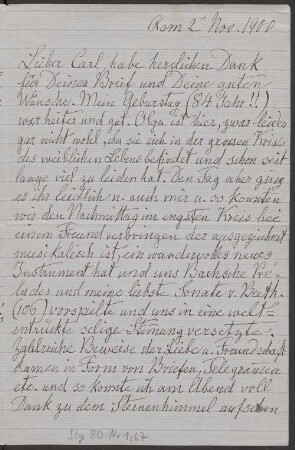 Rom 2 Nov. 1900
Lieber Carl, habe herzlichen Dank
für Deinen Brief und Deine guten
Wünsche. Mein Geburtstag (84 Jahr!!)
war heiter und gut. Olga ist hier, zwar leider
gar nicht wohl, da sie sich in der grossen Krisis
des weiblichen Lebens befindet und schon seit
lange viel zu leiden hat. Den Tag aber ging
es ihr leidlich u. auch mir u. so konnten
wir den Nachmittag im engsten Kreis bei
einem Freund verbringen der ausgezeichnet
musikalisch ist, ein wundervolles neues
Instrument hat und uns Bachsche Pre-
ludes und meine liebste Sonate v. Beeth.
(106) vorspielte und uns in eine welt-
entrückte selige Stimung versetzte.
Zahlreiche Beweise der Liebe u. Freundschaft
kamen in Form von Briefen, Telegramen
etc. und so konnte ich am Abend voll
Dank zu dem Sternenhimmel aufsehen